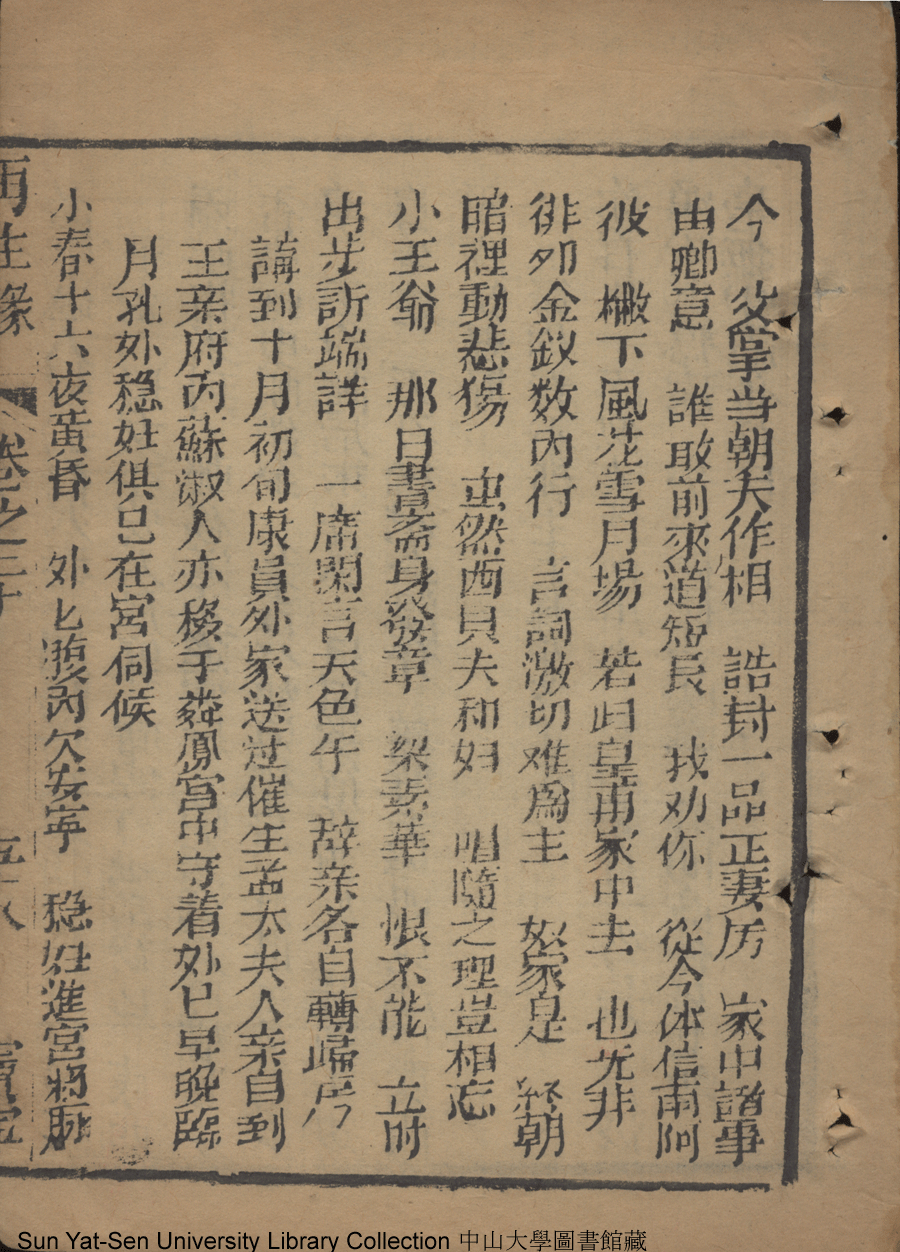 今　必掌当朝夫作相　誥封一品正妻房　家中諸事
由卿意　誰敢前來道短長　我劝你　從今体信甫阿
彼　撇下風花雪月場　若归皇甫家中去　也无非
徘列金釵数內行　言詞激切难為主　怒家是　終朝
暗裡動悲傷　虫然酉貝夫和妇　唱隨之理豈相忘
小王爺　那日書斋身發章　梁素華　恨不能　立时
出步訴端詳　一席閑言天色午　辞亲各自轉歸房
講到十月初旬康員外家送过催生孟太夫人亲自到
王亲府內蘇淑人亦移于鸞鳳宮中守着外巳早晚臨
月乳外稳妊俱已在宮伺候
小春十六夜黃昏　外匕腹內欠安寧　稳妊進宮將脈
再生緣　卷之二十　五十八　寶寧
Sun Yat-Sen University Library Collection 中山大學圖書館藏